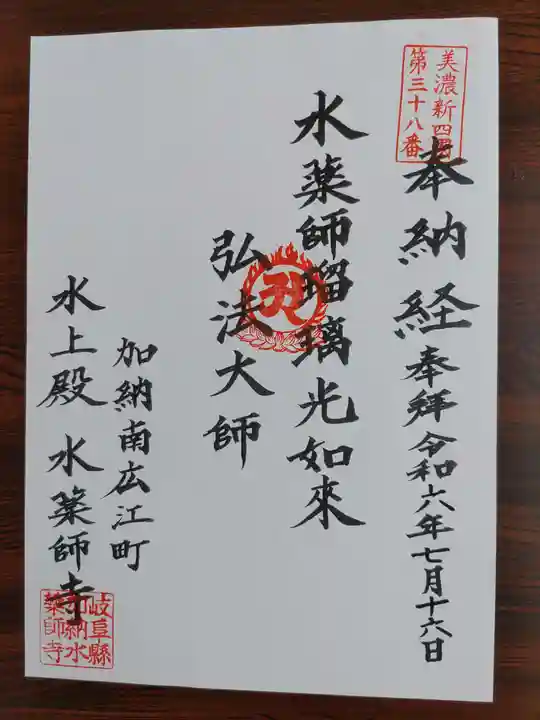 美濃新四国
第三十八番
奉納経 奉拜 令和六年七月十六日
水薬師瑠璃光如來
弘法大師
加納南広江町
水上殿 水薬師寺
岐阜縣
加納水
薬師寺